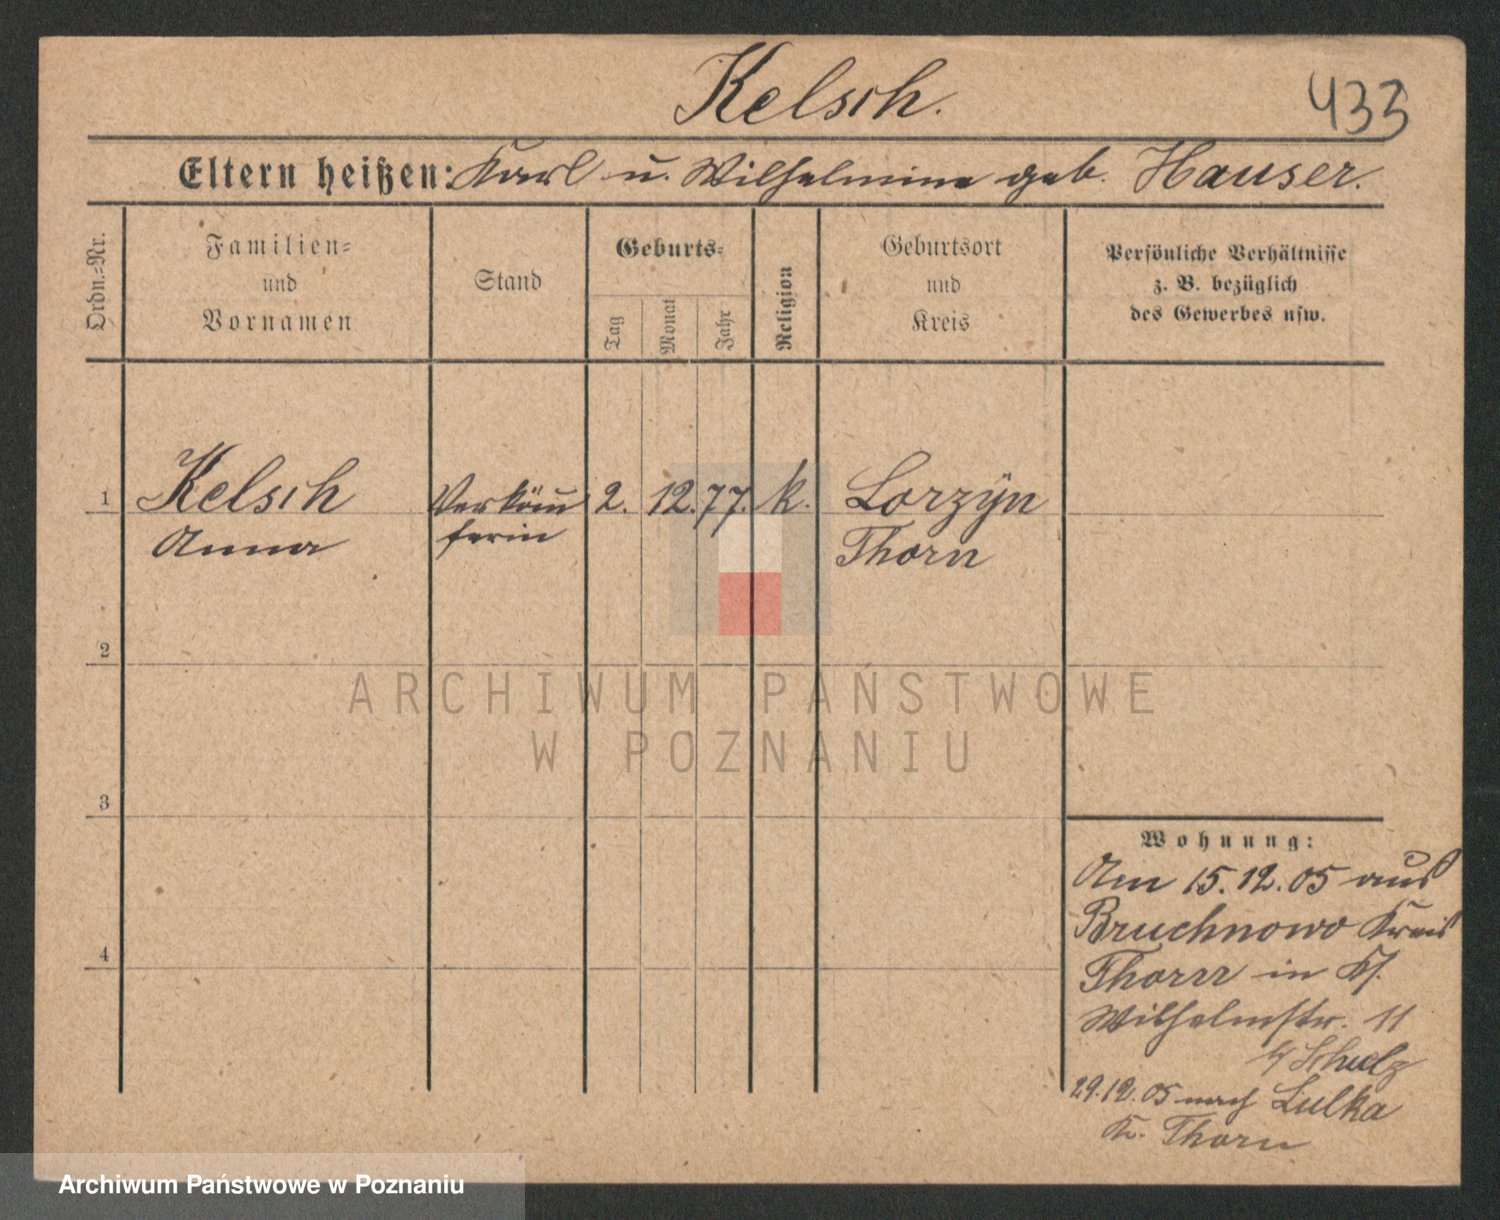 Kelsch.
433
Eltern heißen: Karl u. Wilhelmine geb. Hauser.
Ordn.=Nr.
Familien=
und
Vornamen
Stand
Geburts=
Tag
Monat
Jahr
Religion
Geburtsort
und
Kreis
Persönliche Verhältnisse
z. B. bezüglich
des Gewerbes usw.
1 Kelsch Verkäu 2. 12. 77. k. Lorzÿn
Anna ferin Thorn
2
ARCHIWUM PAŃSTWOWE
W POZNANIU
3
Wohnung:
Am 15.12.05 aus
Bruchnowo Kreis
4
Thorn in
Wilhelmstr. 11
b/ Schulz
29.12.05 nach Lulka
Kr. Thorn
Archiwum Państwowe w Poznaniu